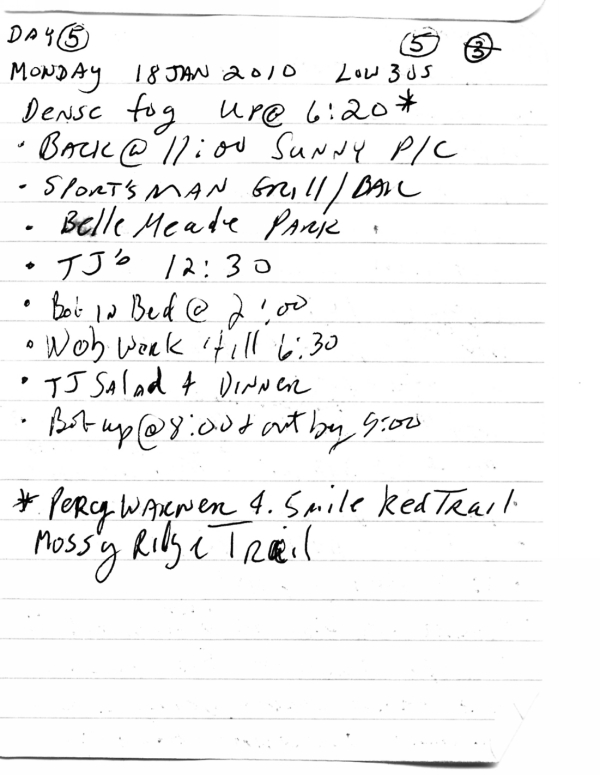 DAY 5
5 3
MONDAY 18 JAN 2010 LOW 30s
Dense fog UP@ 6:20*
• BACK@ 11:00 SUNNY P/C
• SPORT'SMAN GRILL/BAR
• Belle Meade PARK
• TJ's 12:30
• Bob IN Bed @ 2:00
• Web Work 'till 6:30
• TJ SALAD 4 DINNER
• Bob up@8:00 & out by 9:00
* PERCY WARNER 4.5mile Red TRAIL
MOSSY RIDGE TRAIL